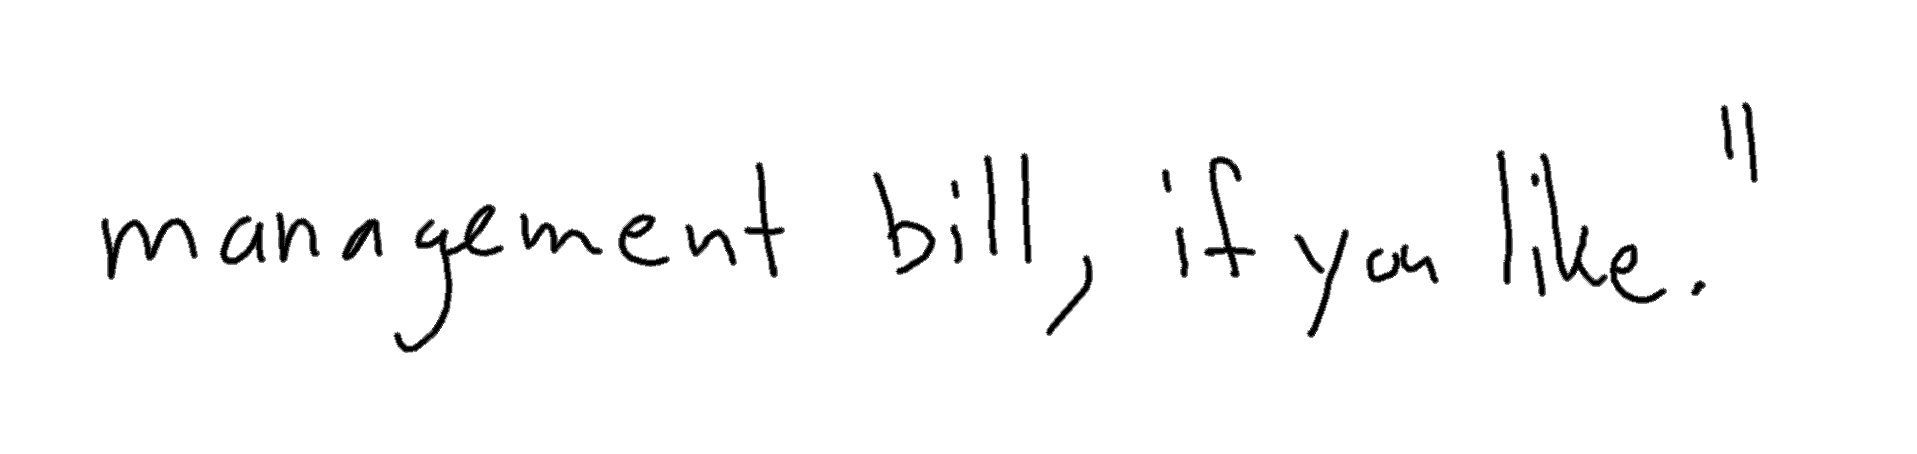 management bill, if you like."